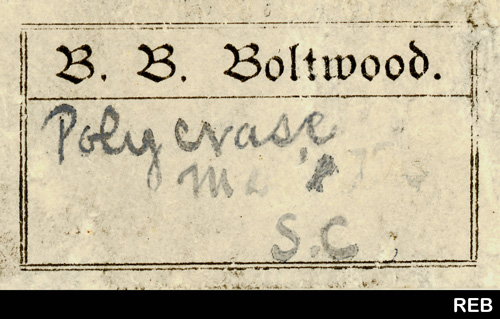 B. B. Boltwood.
Polycrase
S.C.
REB